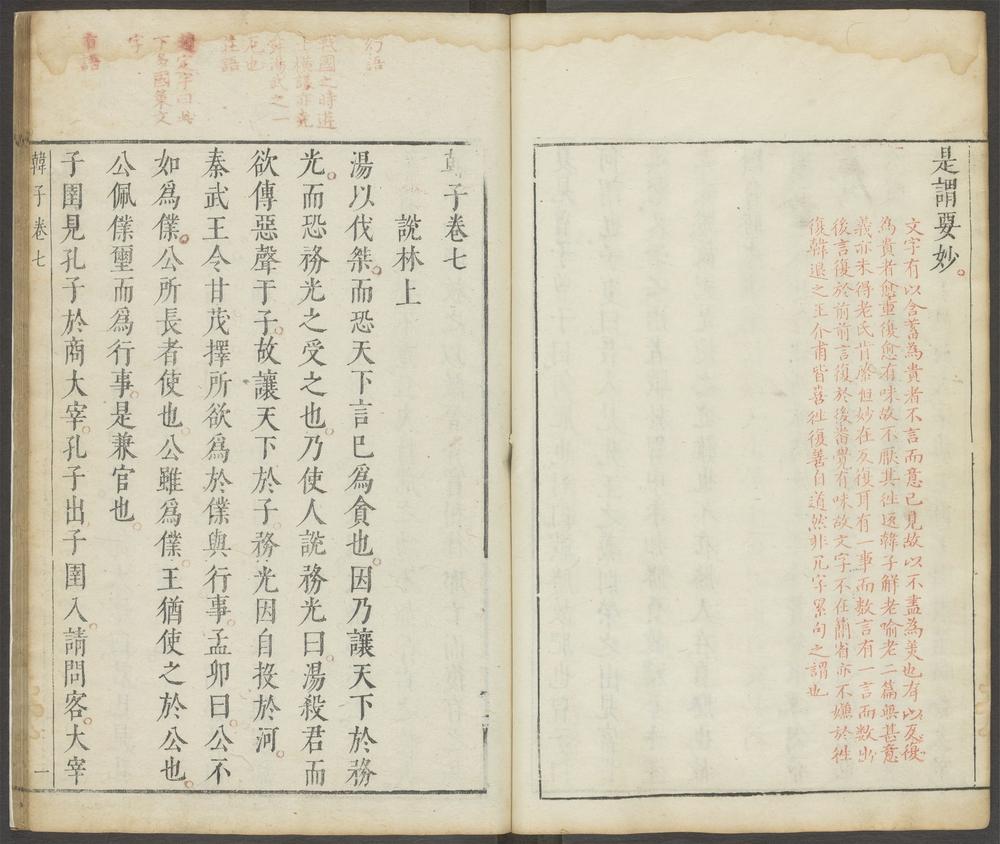 是謂要妙
文字有以含蓄為貴者不言而意已見故以不盡為美也有以反復
為貴者愈重復愈有味故不厭其徃返韓子解老喻老二篇無甚意
義亦未得老氏肯綮但妙在反復耳有一事而数言有一言而数出
後言復於前前言復於後畨覺有味故文字不在簡省亦不嫌於徃
復韓退之王介甫皆喜徃復善自道然非冗字累句之謂也
幻語
戰國之時遊
士橫議亦堯
舜湯武之一
厄也
莊語
下多國策文
字
韓子卷七
說林上
湯以伐桀而恐天下言已爲貪也因乃讓天下於務
光而恐務光之受之也乃使人說務光曰湯殺君而
欲傳惡聲于子故讓天下於子務光因自投於河
秦武王令甘茂擇所欲爲於僕與行事孟卯曰公不
如爲僕公所長者使也公雖爲僕王猶使之於公也
公佩僕璽而爲行事是兼官也
子圉見孔子於商大宰孔子出子圉入請問客大宰
韓子卷七
一